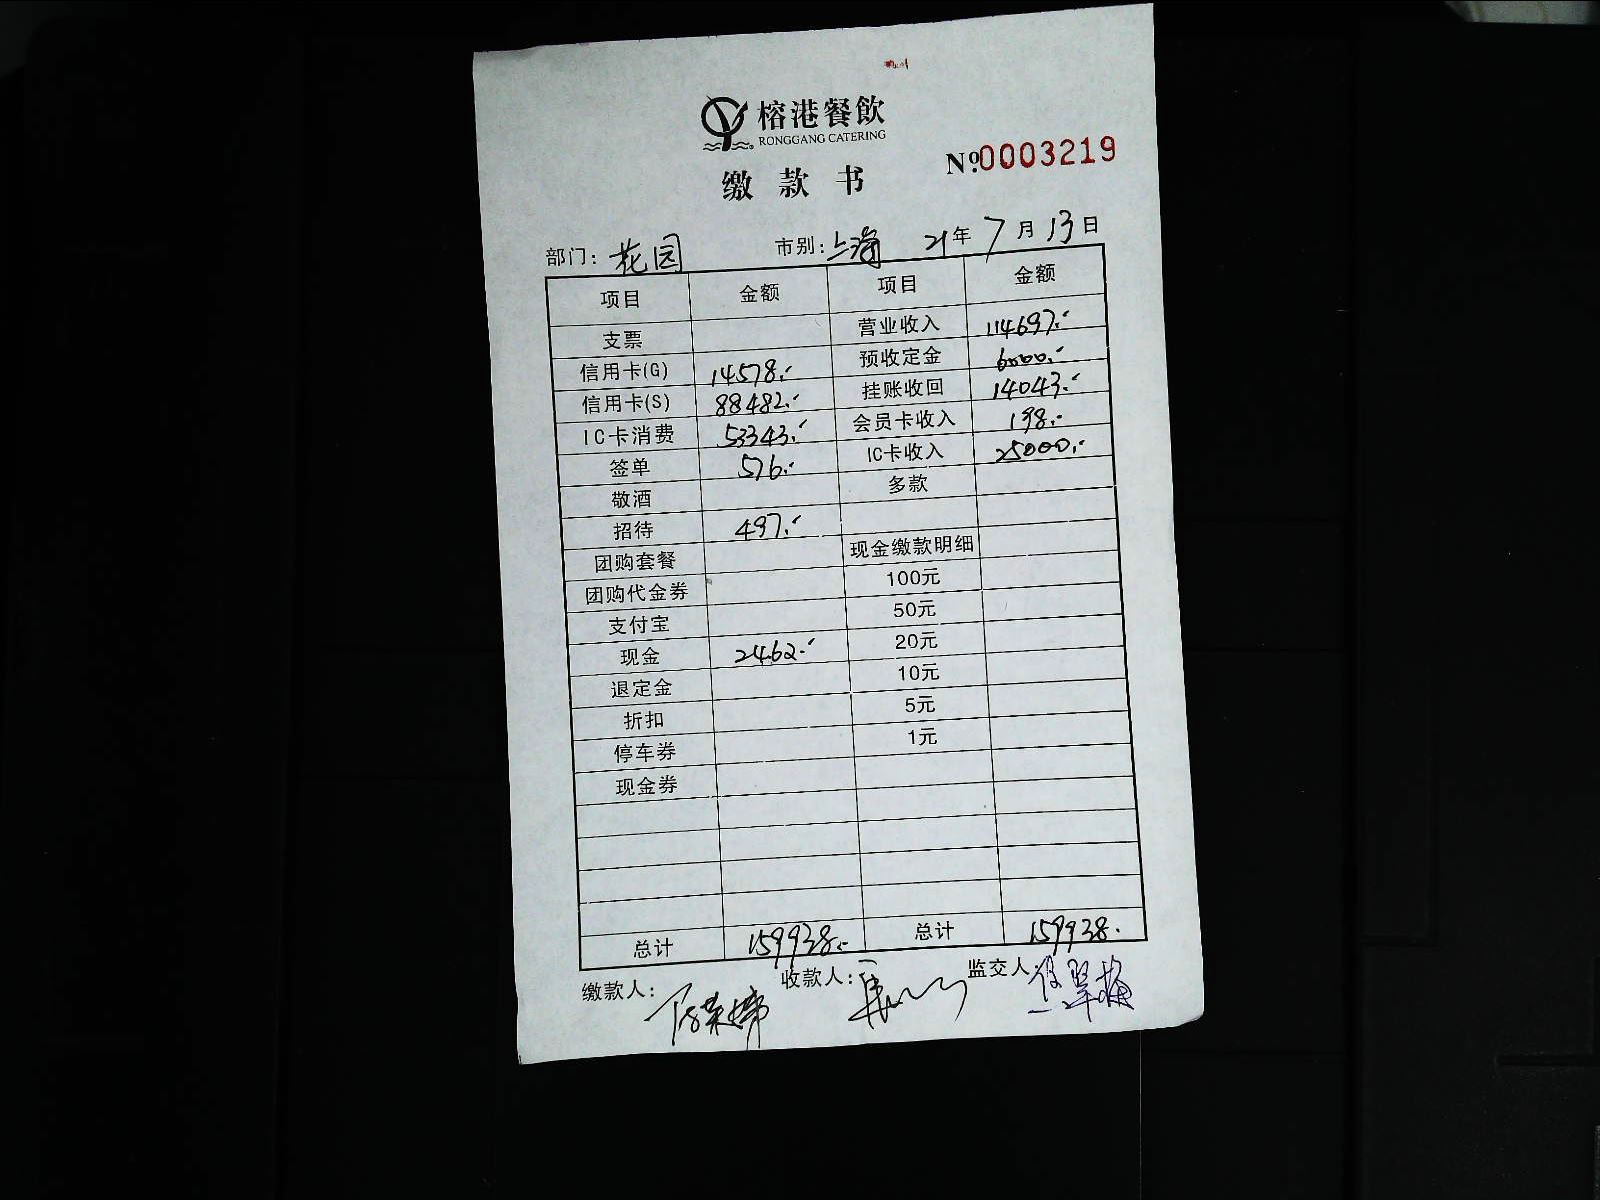 榕港餐飲
RONGGANG CATERING
缴款书
№0003219
部门：花园 市别：上海 21年7月13日
项目 金额 项目 金额
支票 营业收入 114697.-
信用卡(G) 14578.- 预收定金 6000.-
信用卡(S) 88482.- 挂账收回 14043.-
IC卡消费 53343.- 会员卡收入 198.-
签单 576.- IC卡收入 25000.-
敬酒 多款
招待 497.-
团购套餐 现金缴款明细
团购代金券 100元
支付宝 50元
现金 2462.- 20元
退定金 10元
折扣 5元
停车券 1元
现金券
总计 159938.- 总计 159938.
缴款人： 收款人： 监交人：